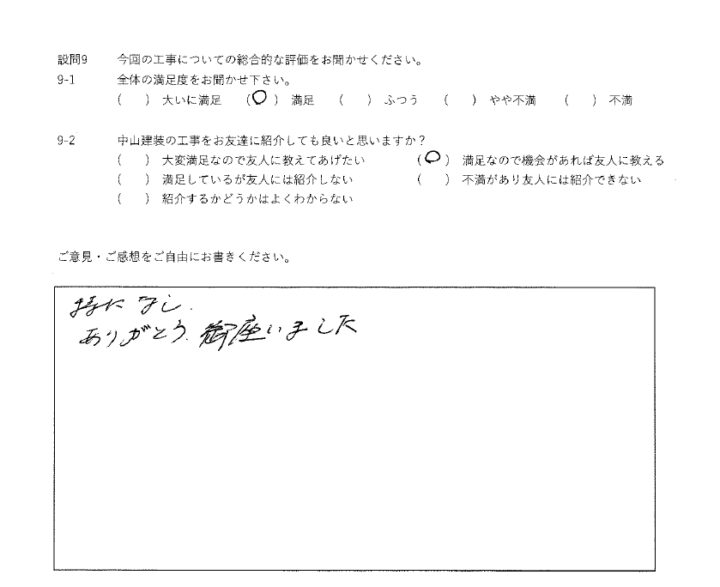 設問9 今回の工事についての総合的な評価をお聞かせください。
9-1 全体の満足度をお聞かせ下さい。
( ) 大いに満足 (○) 満足 ( ) ふつう ( ) やや不満 ( ) 不満
9-2 中山建装の工事をお友達に紹介しても良いと思いますか？
( ) 大変満足なので友人に教えてあげたい (○) 満足なので機会があれば友人に教える
( ) 満足しているが友人には紹介しない ( ) 不満があり友人には紹介できない
( ) 紹介するかどうかはよくわからない
ご意見・ご感想をご自由にお書きください。
特に なし.
ありがとう.御座いました